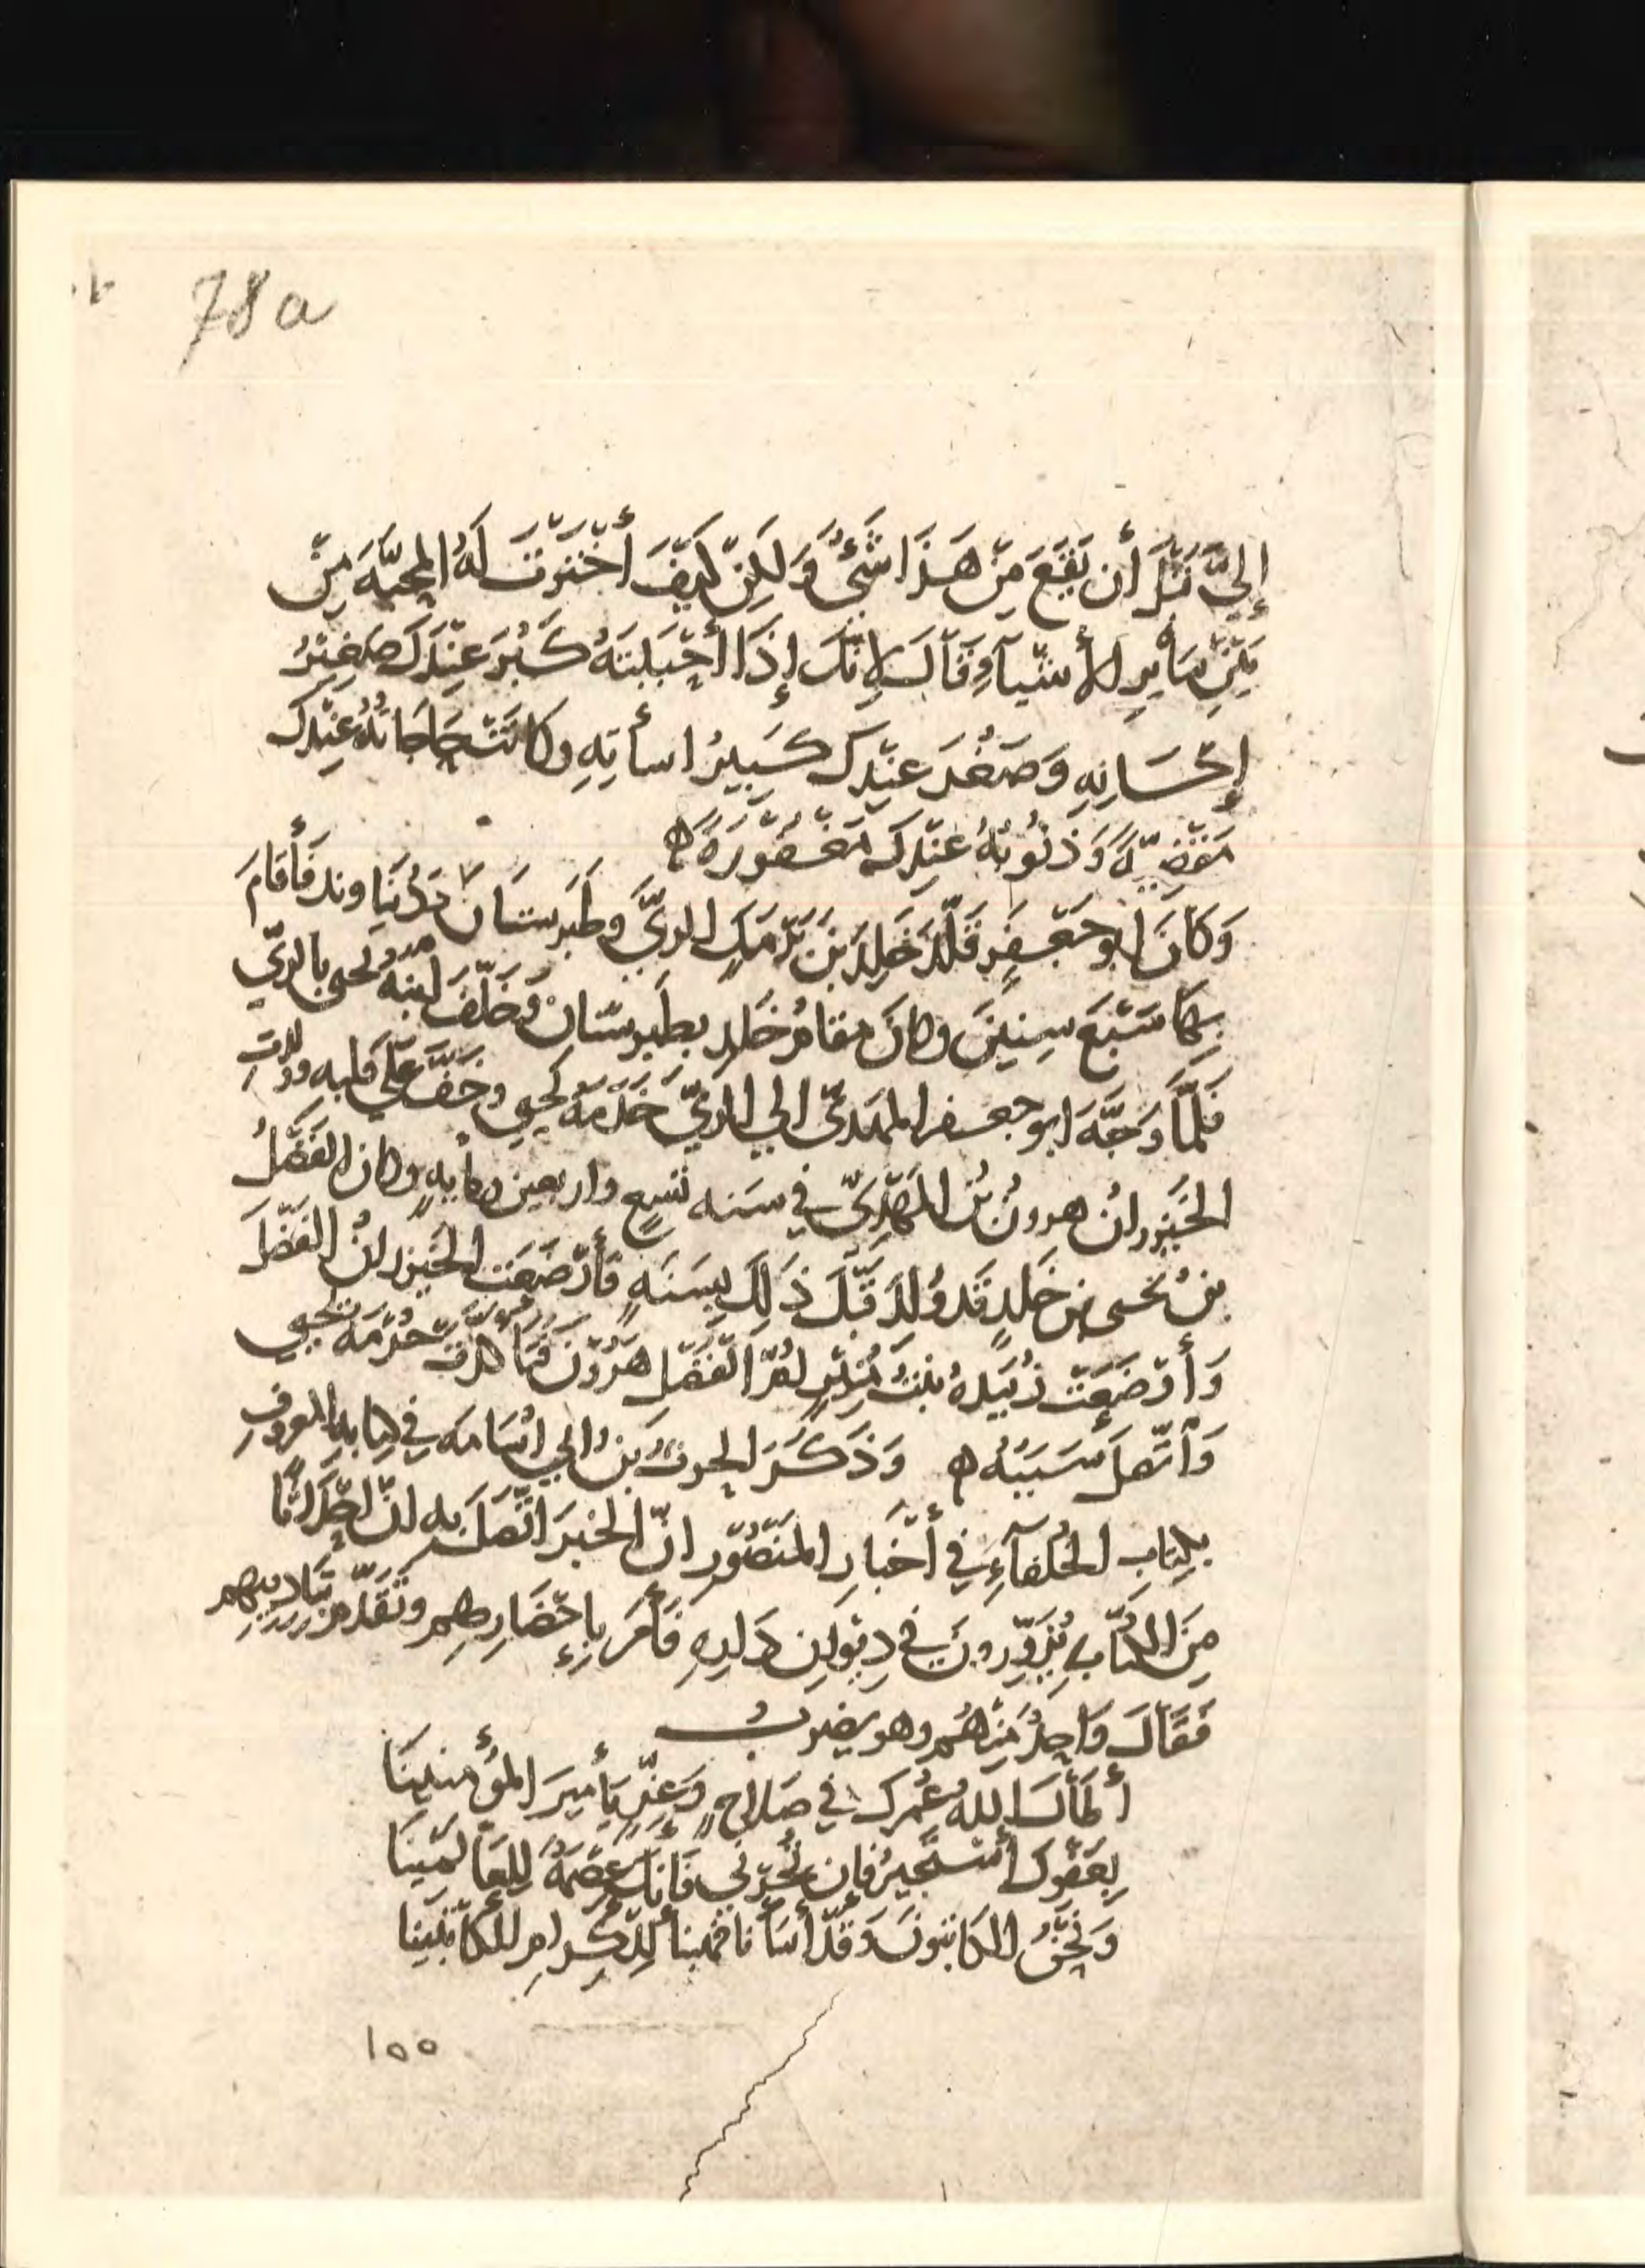 78a
إِلَيَّ قَبْلَ أَن يَقَعَ مِنْ هَذَا شَيْءٌ وَلَكِنْ كَيْفَ أَخْتَرْتَ لَهُ المحبَّةَ مِنْ
بَيْنِ سَائِرِ الأَشْيَآءِ فَقَالَ لِانّكَ إِذَا أَحْبَبْتَهُ كَبُرَ عِنْدَكَ صَغِيْرُ
إِحْسَانِهِ وَصَغُرَ عِنْدَكَ كَبِيرُ اسأتِهِ وكَانَتْ حَاجَاتُهُ عِنْدَكَ
مَقْضِيَّةً وَذُنُوبُهُ عِنْدَكَ مَغْفُوْرَةً ه
وَكَانَ ابو جَعْفَرٍ قَلَّدَ خَلِدَ بْنَ بَرْمَكٍ الريَّ وطَبَرِستَانَ ودُنْبَاوند فَأَقَامَ
بِهَا سَبْعَ سِنِيْنَ وكانَ مقامُ خَلِدٍ بطَبَرِستان وَخَلَّفَ ابنَهُ يحيى بالريّ
فَلَمَّا وَجَّهَ ابو جعفر المهديّ الى الريّ خَدَمَهُ يحيى وخَفَّ عَلَى قلبه وولدتِ
الخَيْزرانُ هرونَ بْنَ المَهْدِيّ في سَنه تسعٍ واربعين ومايهٍ وكان الفَضْلُ
بنُ يحيى بن خَلدٍ قَد وُلدَ قَبْلَ ذَلِكَ بِسَنَهٍ فَأَرْضَعَت الخَيزرانُ الفَضْلَ
وَأَرْضَعَتْ زُبَيْدهُ بنتُ مُنِيْرٍ امُّ الفَضْلِ هَرُوْنَ فتَأكدت حُرْمَة يحيى
وَاتَّصلَ سَبَبُهُ ه وَذَكَرَ الحرثُ بْنُ ابي اسَامه في كتابهِ المعروفِ
بكِتابِ الخُلفآءِ في أَخبارِ المَنْصُوْر انّ الخبرَ اتّصلَ به انّ احْدَاثًا
مِنَ الكتّابِ يُزَوِّرونَ في دِيْوانِ دَارِهِ فَأَمَرَ بِإِحْضَارِهِم وتَقَدّم بتَادِيبِهِم
فَقَالَ وَاحِدٌ مِنْهُم وهو يضربُ
أَطَالَ اللهُ عُمرَك في صَلاحٍ وَعِزٍّ يَأَميرَ المُؤْمنِينَا
بِعَفْوِكَ أَسْتَجِيرُ فإن تُجِرْني فَإنّكَ عِصْمَةٌ لِلعَالمِينَا
وَنَحْنُ الكَاتبونَ وَقَدْ أَسَأْنَا فهَبْنَا لِلْكِرَامِ الكَاتبِيْنَا
١٥٥